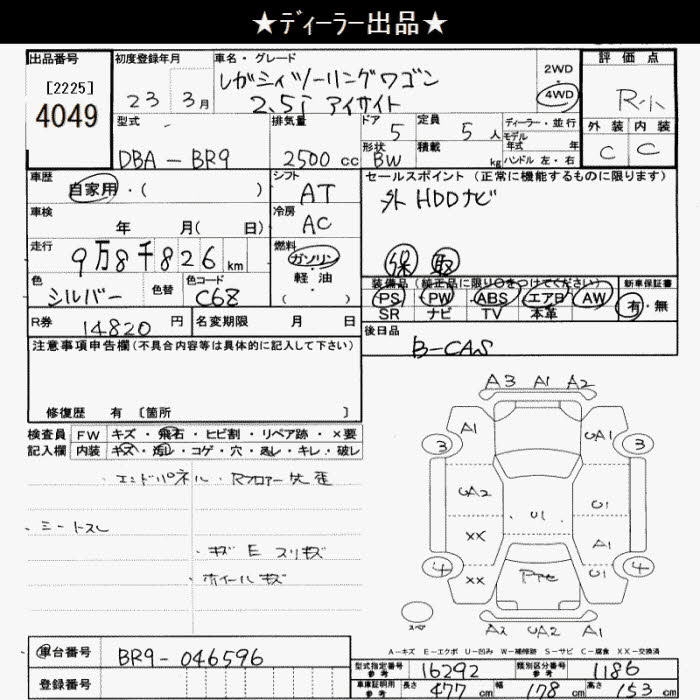 ★ディーラー出品★
出品番号
[2225]
4049
初度登録年月
23 3月
車名・グレード
レガシィツーリングワゴン
2.5i アイサイト
2WD
4WD
評価点
R-小
外装 内装
C C
型式
DBA-BR9
排気量
2500cc
ドア 5
定員 5人
形状 BW
積載 kg
ディーラー・並行
モデル
年式 年
ハンドル 左・右
車歴
自家用・( )
シフト
AT
セールスポイント (正常に機能するものに限ります)
外 HDDナビ
保 取
車検
年 月( 日)
冷房
AC
走行
9万8千826km
燃料
ガソリン
軽油
( )
色
シルバー
色替
色コード
C68
装備品 (純正品に限り○をつけてください)
PS PW ABS エアB AW
SR ナビ TV 本革
新車保証書
有・無
R券
14820円
名変期限 月 日
後日品
B-CAS
注意事項申告欄(不具合内容等は具体的に記入して下さい)
修復歴 有 〔箇所 〕
検査員 FW キズ・飛石・ヒビ割・リペア跡・×要
記入欄 内装 キズ・汚レ・コゲ・穴・スレ・キレ・破レ
・エンドパネル・Rフロアー先歪
・シートスレ
・キズ E スリキズ
・ホイールキズ
A3 A1 A2
A1 UA1
3 3
UA2 U1 U1
XX A1
4 XX U1 4
スペア
A2 UA2 A1
A-キズ E-エクボ U-凹み W-補修跡 S-サビ C-腐食 XX-交換済
車台番号
BR9-046596
登録番号
型式指定番号 参考 16292
類別区分番号 参考 1186
車庫証明用 参考 長さ 477cm 幅 178cm 高さ 153cm